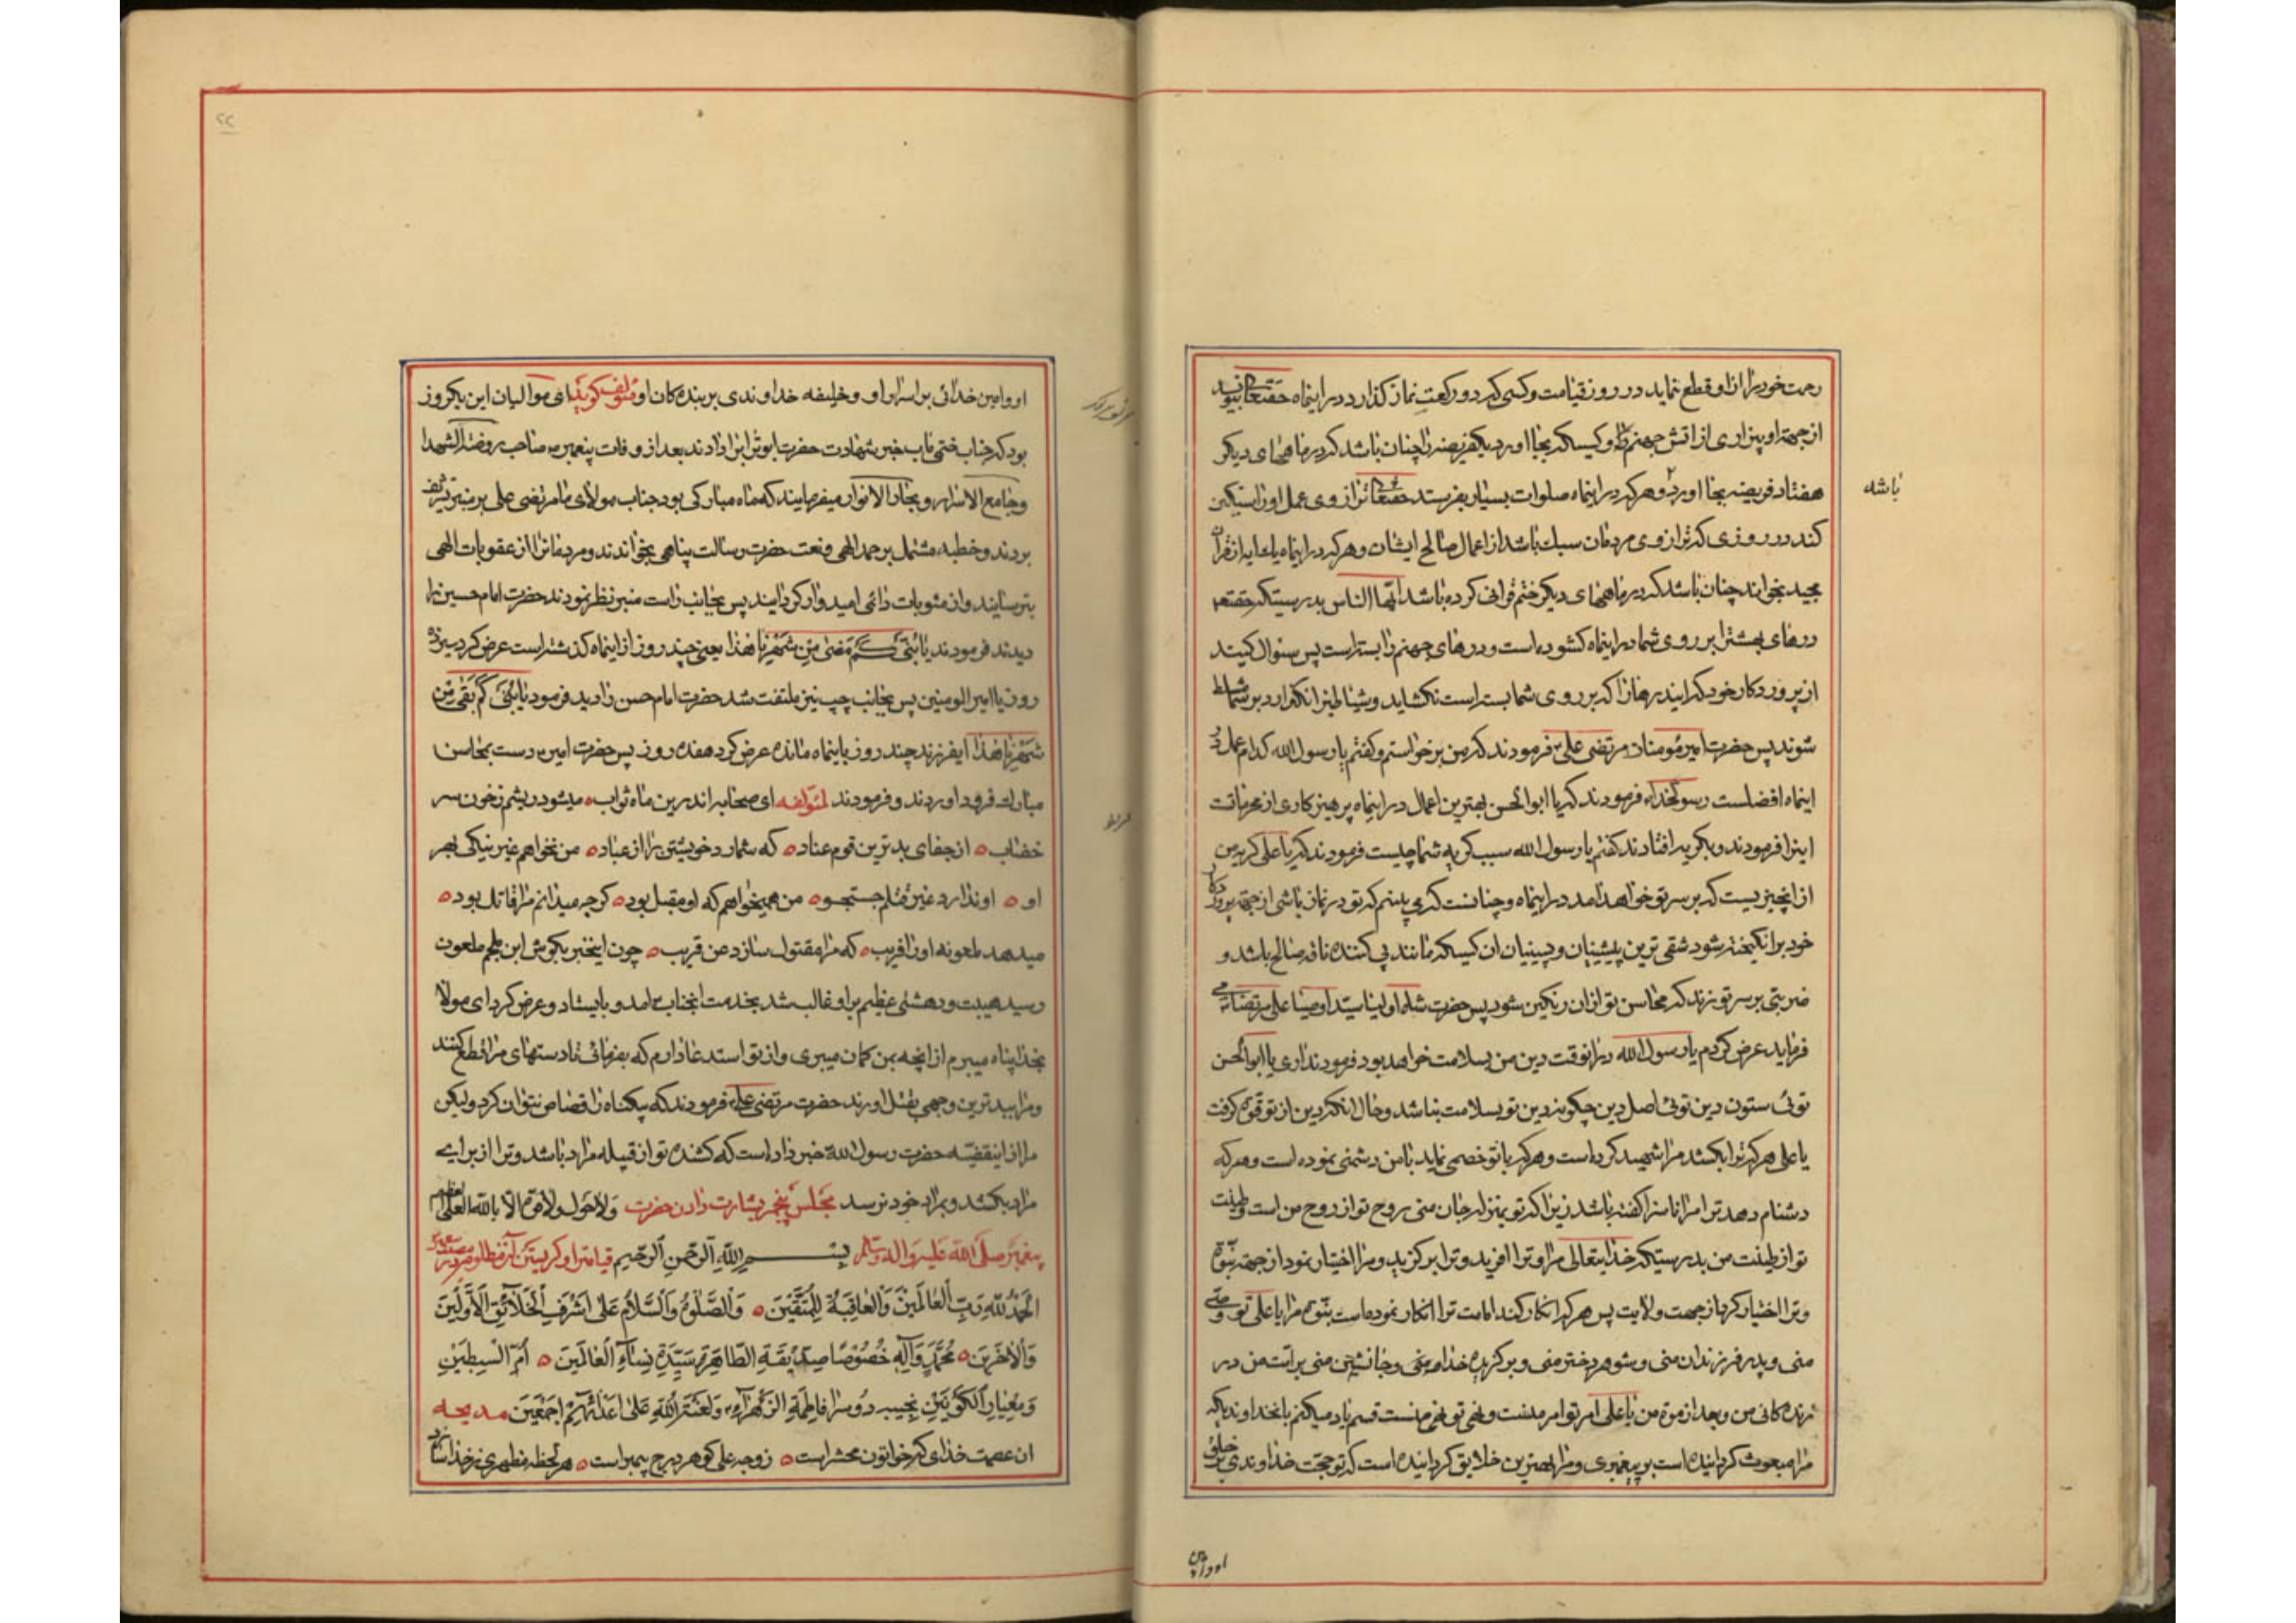 رحمت خود را از او قطع نماید در روز قیامت و کسی که دو رکعت نماز گذارد در اینماه حقتعالی بنویسد
از جهة او بیزاری از اتش جهنم را و کسیکه بجا اورد یکفریضه را چنان باشد که در ماههای دیگر
هفتاد فریضه بجا اورد و هر که در اینماه صلوات بسیار بفرستد حقتعالی ترازوی عمل او را سنگین
باشد
کند در روزی که ترازوی مردمان سبک باشد از اعمال صالح ایشان و هر که در اینماه یک ایه از قران
مجید بخواند چنان باشد که در ماههای دیگر ختم قرانی کرده باشد ایها الناس بدرستیکه حقتعالی
درهای بهشترا بر روی شما در اینماه کشوده است و درهای جهنم را بسته است پس سئوال کنید
از پروردکار خود که اینرهاز که بر روی شما بسته است نکشاید و شیاطین را نکذارد بر شما مسلط
شوند پس حضرت امیر مؤمنان مرتضی علی فرمودند که من برخواستم و کفتم یا رسول الله کدام عمل در
اینماه افضلست رسولخدا فرمودند که یا ابوالحسن بهترین اعمال در اینماه پرهیزکاری از محرمات
اینرا فرمودند و بکریه افتادند کفتم یا رسول الله سبب کریه شما چیست فرمودند که یا علی کریه من
از انچیزیست که بر سر تو خواهد امد در اینماه و چنانست که می بینم که تو در نماز باشی از جهة پروردکار
خود برانکیخته شود شقی ترین پیشینیان و پسینیان ان کسیکه مانند پی کننده ناقه صالح باشد و
ضربتی بر سر تو زند که محاسن تو از ان رنکین شود پس حضرت شاه اولیا سید اوصیا علی مرتضی می
فرماید عرض کردم یا رسول الله در انوقت دین من بسلامت خواهد بود فرمودند اری یا ابوالحسن
توئی ستون دین توئی اصل دین چکونه دین تو بسلامت نباشد و حال انکه دین از تو قوة کرفت
یا علی هر که ترا بکشد مرا شهید کرده است و هر که با تو خصمی نماید با من دشمنی نموده است و هر که
دشنام دهد ترا مرا ناسزا کفته باشد زیرا که تو بمنزله جان منی روح تو از روح من است و طینت
تو از طینت من بدرستیکه خدایتعالی مرا و ترا افرید و ترا برکزید و مرا اختیار نمود از جهة نبوة
و ترا اختیار کرد از جهت ولایت پس هر که انکار کند امامت ترا انکار نموده است نبوة مرا یا علی تو وصی
منی و پدر فرزندان منی و شوهر دختر منی و برکزیده خدا و منی و جانشین منی بر امت من در
زنده کانی من و بعد از موة من یا علی امر تو امر منست و نهی تو نهی منست قسم یاد میکنم با نخداوندیکه
مرا مبعوث کردانیده است بر پیغمبری و مرا بهترین خلایق کردانیده است که تو حجت خداوندی بر خلق
او و امین
۲۲
او و امین خدائی بر اسرار او و خلیفه خداوندی بر بنده کان او مؤلف کوید ای موالیان این یکروز
بود که جناب ختمی ماب خبر شهادت حضرت ابوتراب را دادند بعد از وفات پیغمبر صاحب روضة الشهدا
و جامع الاسرار و بحار الانوار میفرمایند که ماه مبارکی بود جناب مولای ما مرتضی علی بر منبر تشریف
بردند و خطبه مشتمل بر حمد الهی و نعت حضرت رسالت پناهی بخواندند و مردمانرا از عقوبات الهی
بترسانیدند و از مثوبات دائمی امیدوار کردانیدند پس بجانب راست منبر نظر نمودند حضرت امام حسین را
دیدند فرمودند یا بنی کم مضی من شهرنا هذا یعنی چند روز از اینماه کذشته است عرض کرد سیزده
روز یا امیر المومنین پس بجانب چپ نیز ملتفت شد حضرت امام حسن را دید فرمود یا بنی کم بقی من
شهرنا هذا ایفرزند چند روز باینماه مانده عرض کرد هفده روز پس حضرت امیر دست بمحاسن
مبارک فرود اوردند و فرمودند لمؤلفه ای صحابه اندرین ماه ثواب میشود ریشم ز خون سر
خضاب از جفای بدترین قوم عناد که شمارد خویشتن را از عباد من نخواهم غیر نیکی بهر
او او ندارد غیر قتلم جستجو من همیخواهم که او مقبل بود کرچه میدانم مرا قاتل بود
میدهد ملعونه او را فریب که مرا مقتول سازد عن قریب چون اینخبر بکوش ابن ملجم ملعون
رسید هیبت و دهشتی عظیم بر او غالب شد بخدمت انجناب امد و بایستاد و عرض کرد ای مولا
بخدا پناه میبرم از انچه بمن کمان میبری و از تو استدعا دارم که بفرمائی تا دستهای مرا قطع کنند
و مرا ببدترین وجهی بقتل اورند حضرت مرتضی علی فرمودند که بیکناه را قصاص نتوان کرد ولیکن
مرا از اینقضیه حضرت رسول الله خبر داده است که کشنده تو از قبیله مراد باشد و ترا از برای
مراد بکشد و بمراد خود نرسد مجلس پنجم بشارت دادن حضرت ولا حول ولا قوة الا بالله العلی العظیم
پیغمبر صلی الله علیه واله وسلم بسم الله الرحمن الرحیم قیامترا و کریستن آن مظلومه
الحمد لله رب العالمین والعاقبة للمتقین والصلوة والسلام علی اشرف الخلائق الاولین
والاخرین محمد وآله خصوصا صدیقة الطاهرة سیدة نساء العالمین ام السبطین
ومعیار الکونین نجیبه دوسرا فاطمة الزهراء ولعنة الله علی اعدائهم اجمعین مدیحه
ان عصمت خدای که خواتون محشر است زوجه علی کوهر درج پیمبر است هر لحظه مظهری ز خدا